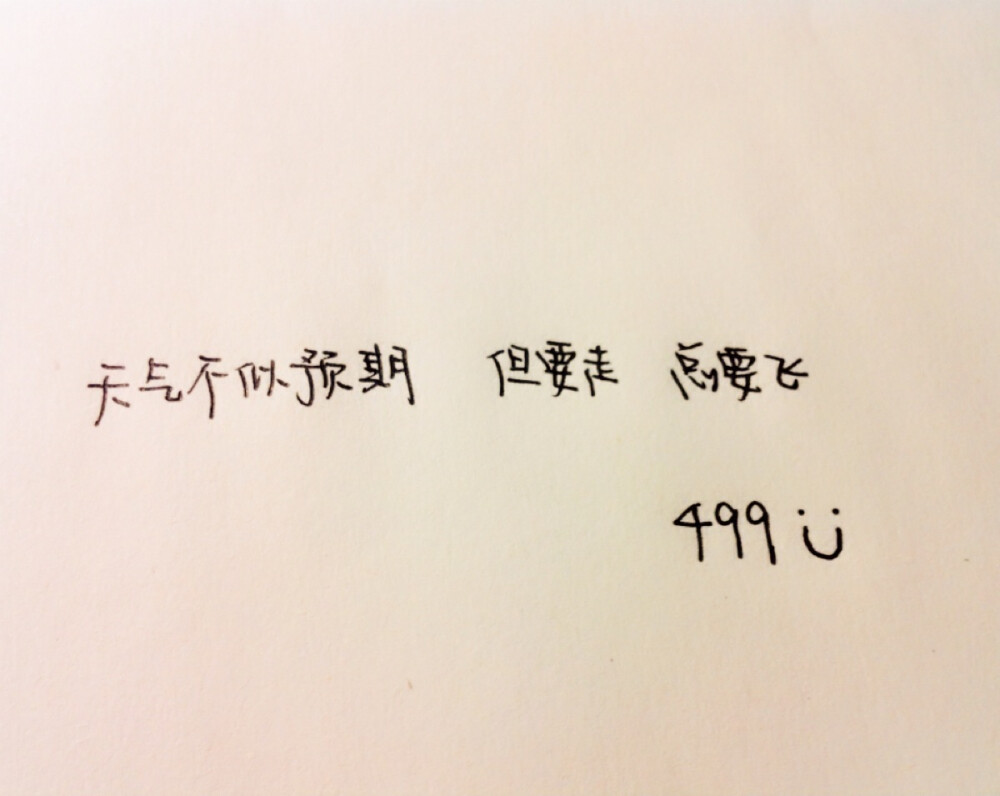 天气不似预期 但要走 总要飞
499 ü